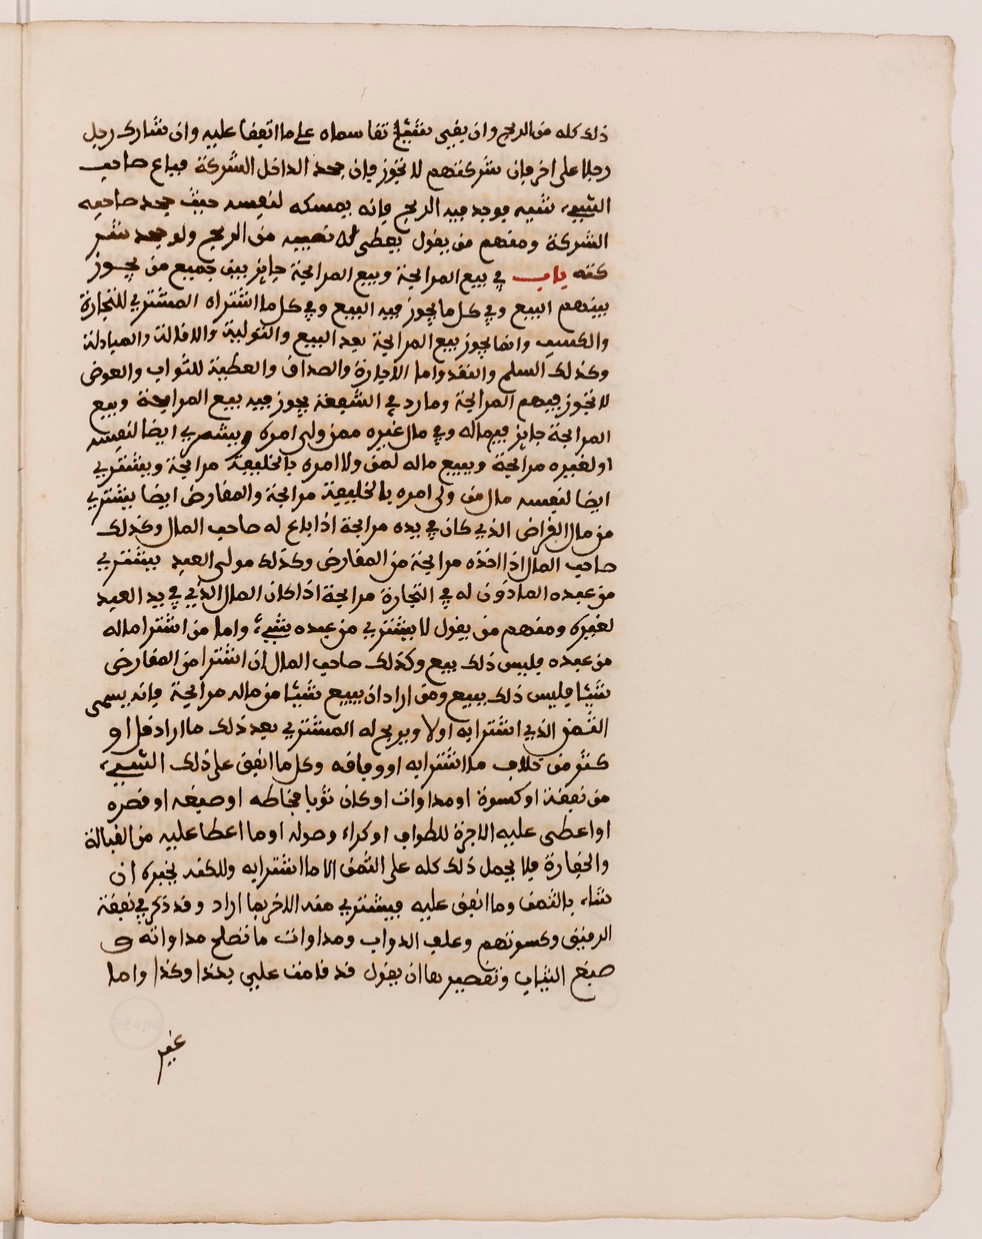 ذلك كله من الربح وان بقي شيئا تقاسماه على ما اتفقا عليه وان شارك رجل
رجلا على اخر فان شركتهم لا تجوز فان جحد الداخل الشركة فباع صاحب
الشيء شيه فوجد فيه الربح فانه يمسكه لنفسه حيث جحد صاحبه
الشركة ومنهم من يقول يعطى له نصيبه من الربح ولو جحد
باب في بيع المرابحة وبيع المرابحة جايز بين جميع من يجوز
بينهم البيع وفي كل ما يجوز فيه البيع وفي كل ما اشتراه المشتري للتجارة
والكسب وانما يجوز بيع المرابحة بعد البيع والتولية والاقالة والمبادلة
وكذلك السلم والنقد واما الاجارة والصداق والعطية للثواب والعوض
لا تجوز فيهم المرابحة وما رد في الشفعة يجوز فيه بيع المرابحة وبيع
المرابحة جايز في ماله وفي مال غيره ممن ولي امره ويشتري ايضا لنفسه
او لغيره مرابحة ويبيع ماله لمن ولا امره بالخليفة مرابحة ويشتري
ايضا لنفسه مال من ولي امره بالخليفة مرابحة والمقارض ايضا يشتري
من مال القراض الذي كان في يده مرابحة اذا باع له صاحب المال وكذلك
صاحب المال اذا اخذه مرابحة من المقارض وكذلك مولى العبد يشتري
من عبده الماذون له في التجارة مرابحة اذا كان المال الذي في يد العبد
لغيره ومنهم من يقول لا يشتري من عبده شيء واما من اشترا ماله
من عبده فليس ذلك ببيع وكذلك صاحب المال ان اشترا من المقارض
شيئا فليس ذلك ببيع ومن اراد ان يبيع شيئا من ماله مرابحة فانه يسمى
الثمن الذي اشترا به اولا ويربح له المشتري بعد ذلك ما اراد قل او
كثر من خلاف ما اشترا به او وفاقه وكل ما انفق على ذلك الشيء
من نفقة او كسوة او مداوات او كان ثوبا فخاطه او صبغه او قصره
او اعطى عليه الاجرة للطواف او كراء وصوله او ما اعطا عليه من القبالة
والخفارة فلا يحمل ذلك كله على الثمن الا ما اشترا به ولكنه يخبره ان
شاء بالثمن وما انفق عليه فيشتري منه الاخر بما اراد وقد ذكر في نفقة
الرقيق وكسوتهم وعلف الدواب ومداوات ما تصلح مداواته و
صبغ الثياب وتقصيرها ان يقول قد قامت علي بكذا وكذا واما
غير